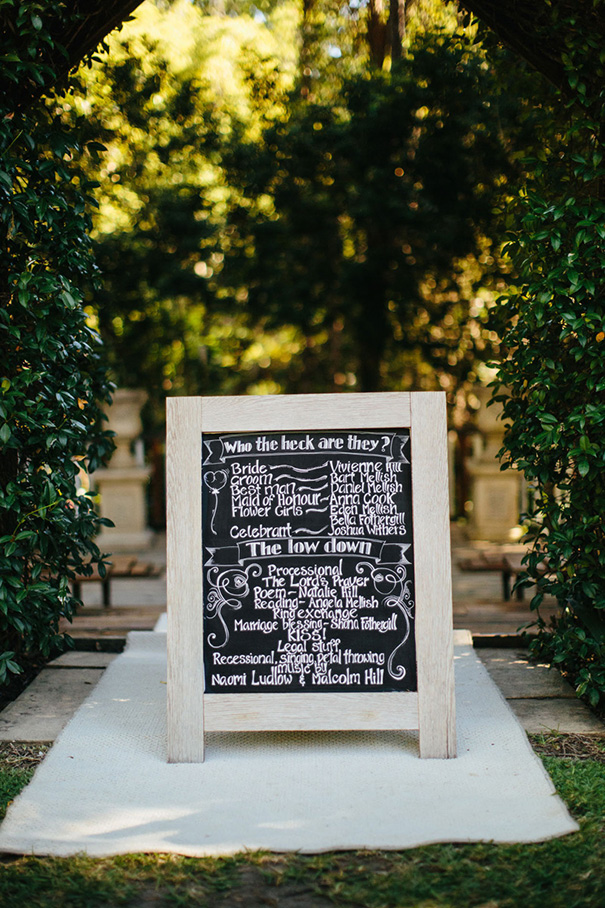 Who the heck are they?
Bride Vivienne Hill
Groom Bart Mellish
Best man Daniel Mellish
Maid of Honour Anna Cook
Flower Girls Eden Mellish
Bella Fothergill
Celebrant Joshua Withers
The low down
Processional
The Lord's Prayer
Poem - Natalie Hill
Reading - Angela Mellish
Ring exchange
Marriage blessing - Shona Fothergill
KISS!
Legal stuff
Recessional, singing, petal throwing
music by
Naomi Ludlow & Malcolm Hill